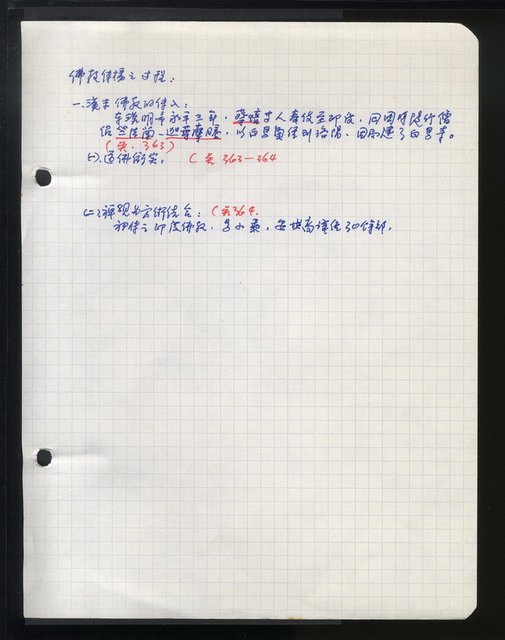 佛教傳播之过程:
一.漢末佛教的傳入:
東漢明帝永平三年,蔡愔等人奉使至印度,同固特隨行僧
侶竺法蘭、迦葉摩騰,以白馬負佛到洛陽,因而建了白馬寺。
(荚. 363)
(一).道佛 (荚 363-364
(二)禅觀与方術結合: (荚364.
初傳之印度佛教,多小乘,安世高譯佬30餘部.